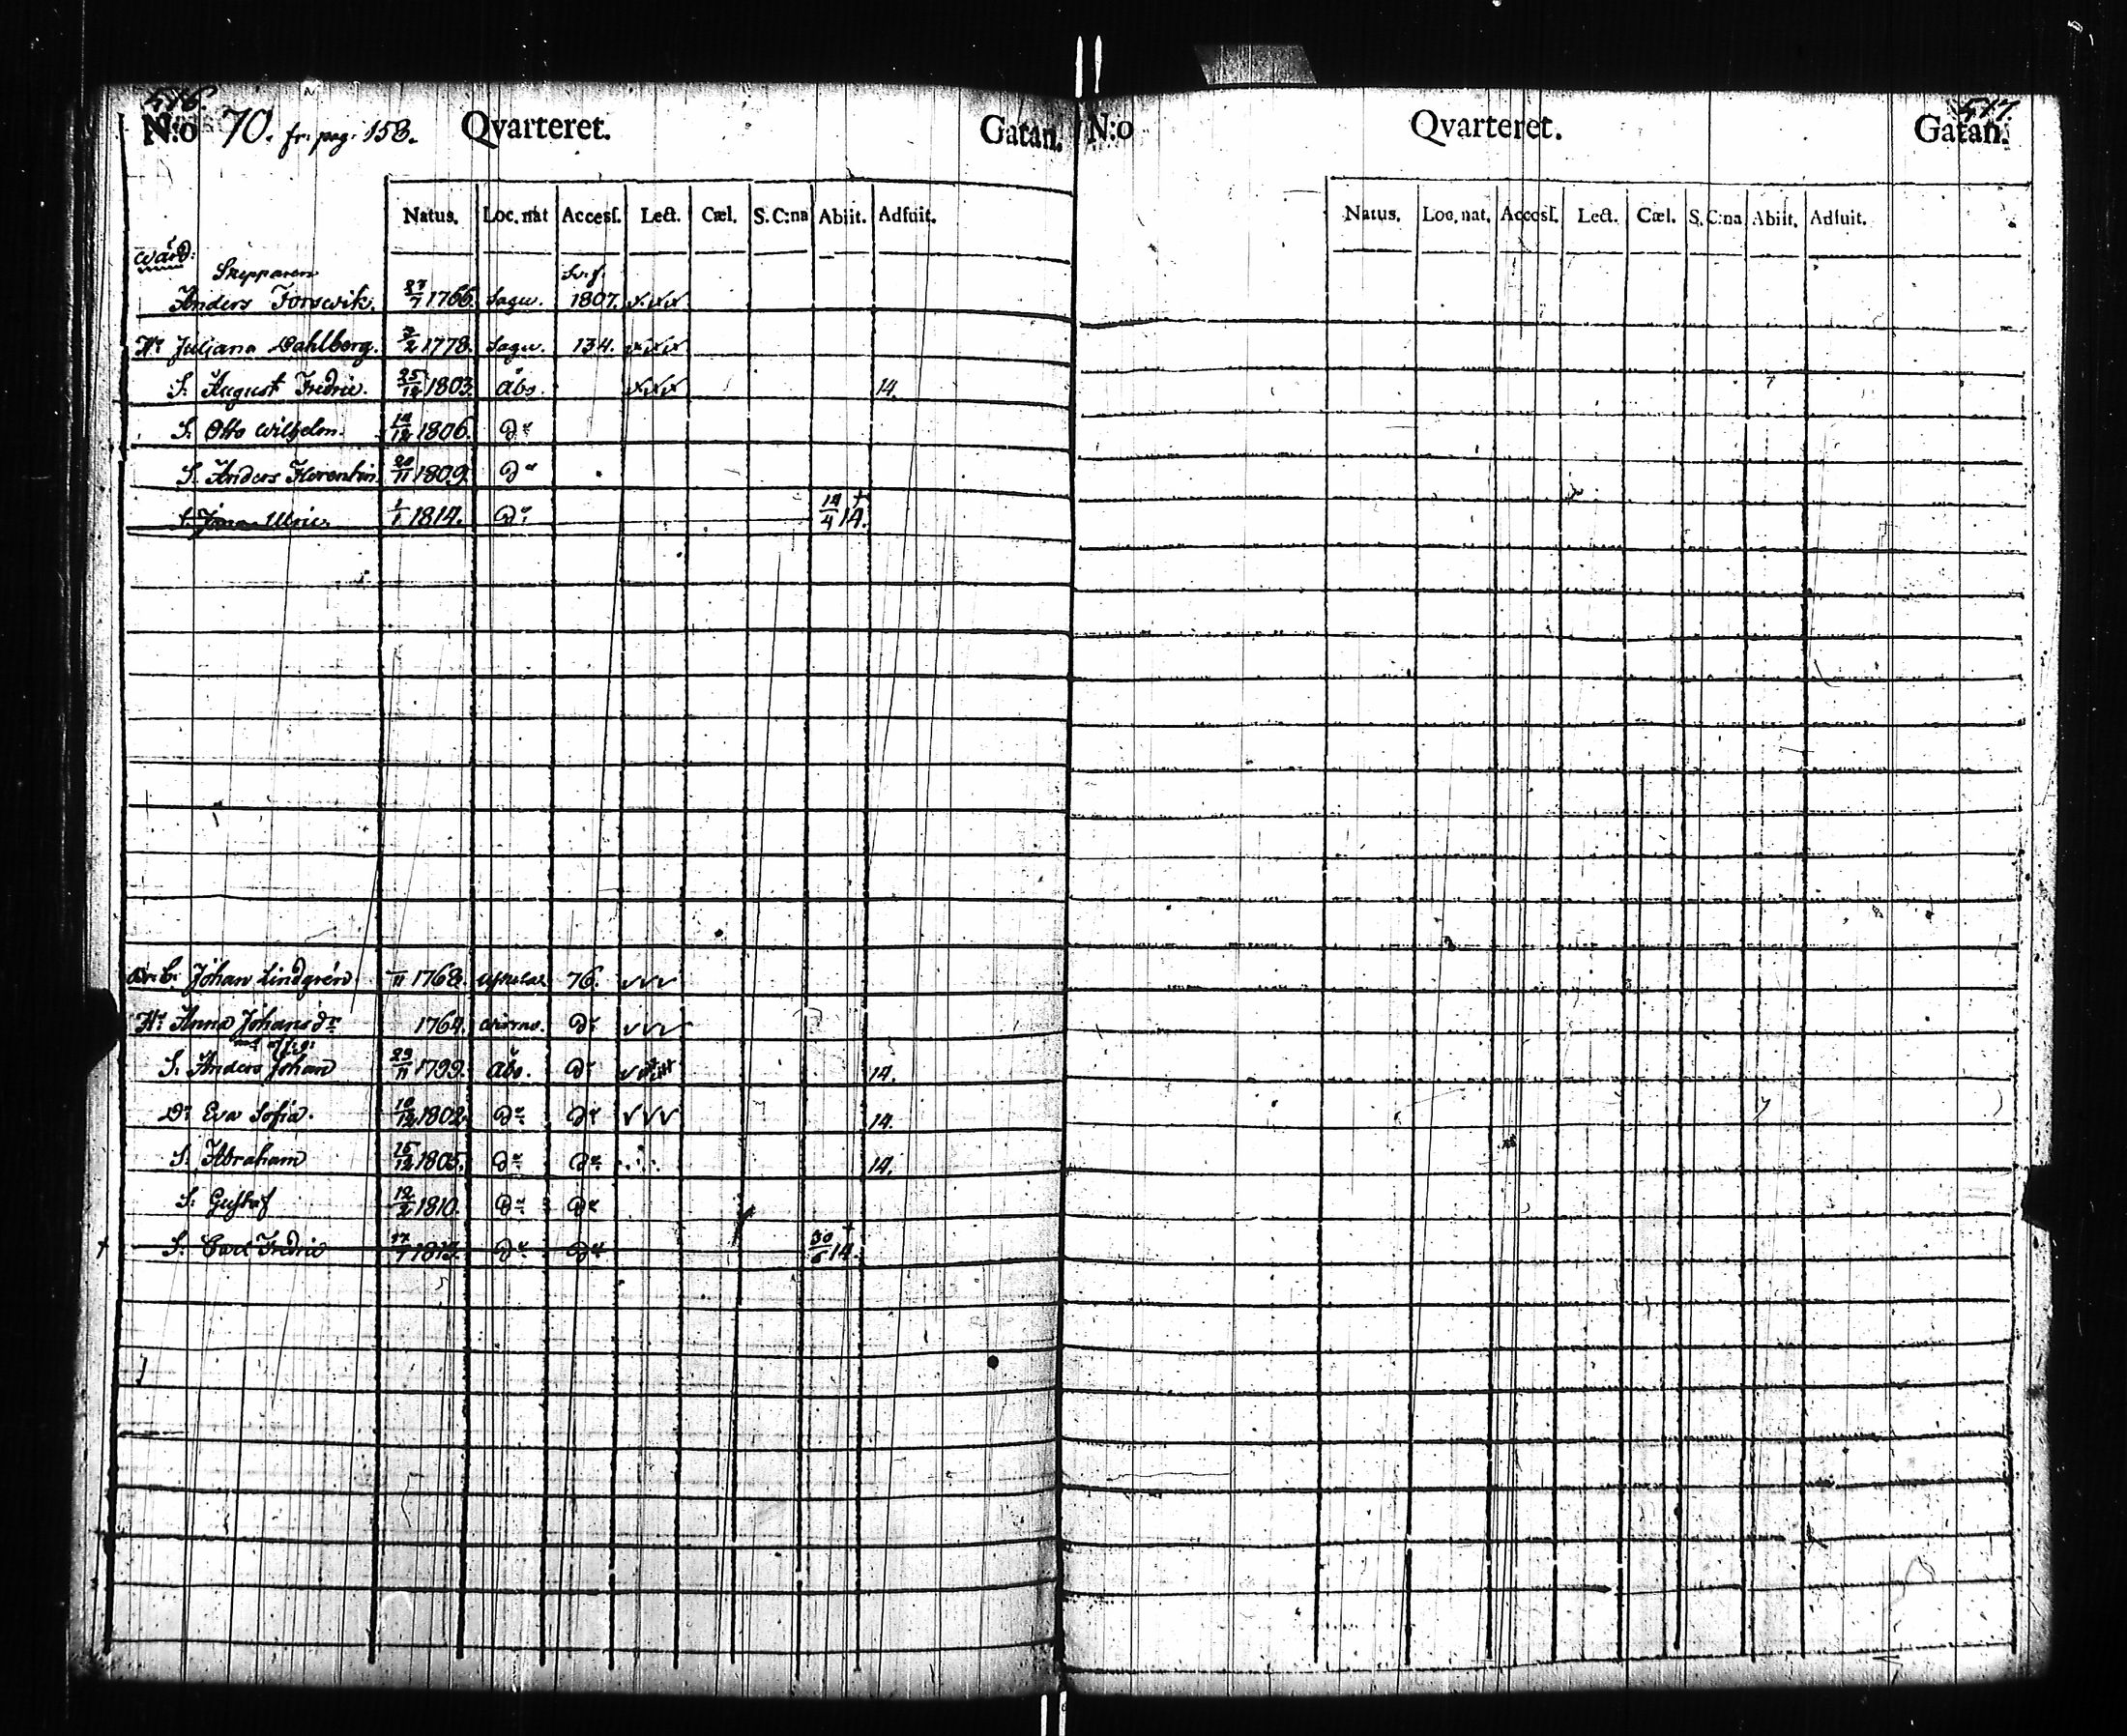 516.
N:o 70. fr. pag. 158. Qvarteret. Gatan.
Natus. Loc. nat Accesſ. Lect. Cæl. S. C:na Abiit. Adfuit.
Wård:
Skepparen Sv. f.
Anders Forswik. 27/7 1766. Sagu. 1807. xxx
H: Juliana Dahlberg. 7/2 1778. Sagu. 134. xxx
S. August Fredric. 25/12 1803. Åbo. xxx 14.
S. Otto Wilhelm. 14/12 1806. Do
S. Anders Florentin 20/11 1809. Do
S. Jonas Ulric. 1/1 1814. Do 14/4 14. †
Johan Lindgrén /11 1768. 76. vvv
H: Anna Johansdr 1764. Wirmo. Do vvv
S. Anders Johan 29/11 1799. Åbo. Do 14.
Dr Eva Sofia. 10/12 1802. Do Do vvv 14.
S. Abraham 15/12 1805. Do Do 14.
S. Gustaf 12/2 1810. Do Do
† S. Carl Fredric 17/7 1813. Do Do 30/6 14. †
517.
N:o Qvarteret. Gatan.
Natus. Loc. nat. Accesſ. Lect. Cæl. S. C:na Abiit. Adfuit.